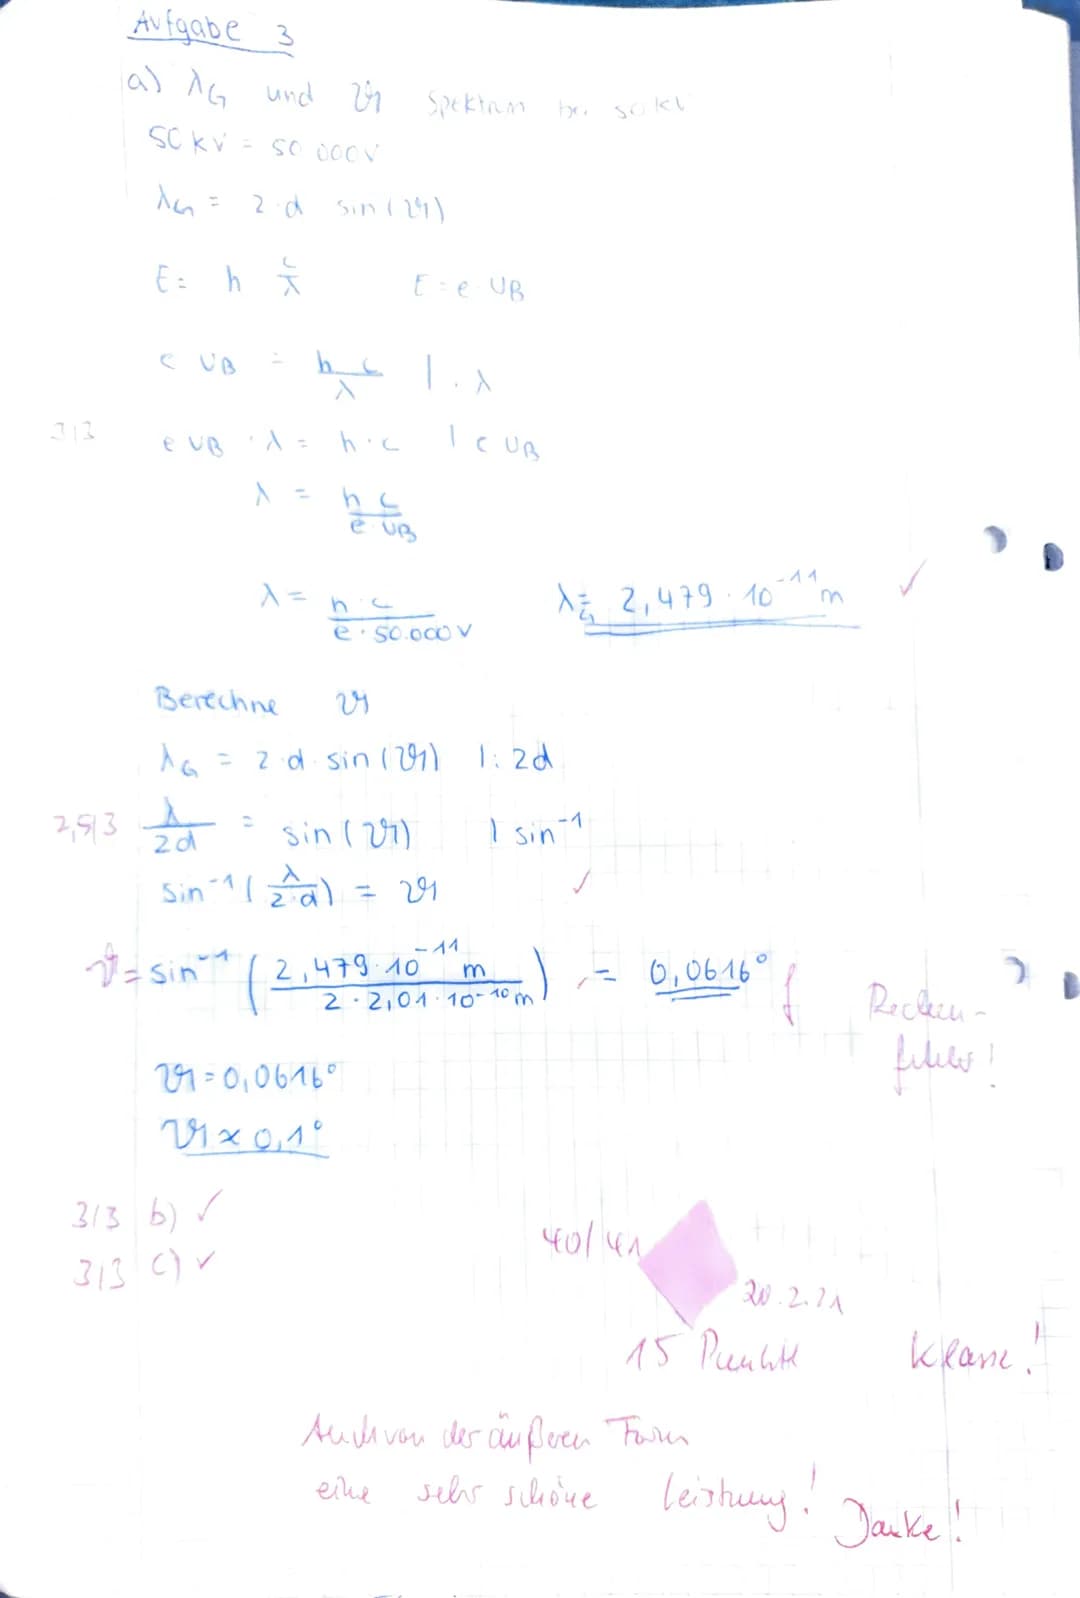 Aufgabe 3
a) λG und ϑ Spektrum bei 50 kV
50 kV = 50 000 V
λG = 2·d sin(ϑ)
E = h c/λ E = e UB
e UB = h c/λ | · λ
3/3 e UB · λ = h·c | e UB
λ = h c/e·UB
λ = h·c/e·50.000 V λG = 2,479·10⁻¹¹ m ✓
Berechne ϑ
λG = 2·d·sin(ϑ) |: 2d
2,5/3 λ/2d = sin(ϑ) | sin⁻¹
sin⁻¹(λ/2·d) = ϑ ✓
ϑ = sin⁻¹(2,479·10⁻¹¹ m/2·2,01·10⁻¹⁰ m) = 0,0616° f Rechen-
fehler!
ϑ = 0,0616°
ϑ ≈ 0,1°
3/3 b) ✓
3/3 c) ✓
40/41
20.2.21
15 Punkte Klasse!
Auch von der äußeren Form
eine sehr schöne Leistung! Danke!